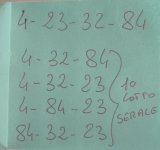 4-23-32-84
4-32-84
4-32-23
4-84-23
84-32-23
10
LOTTO
SERALE